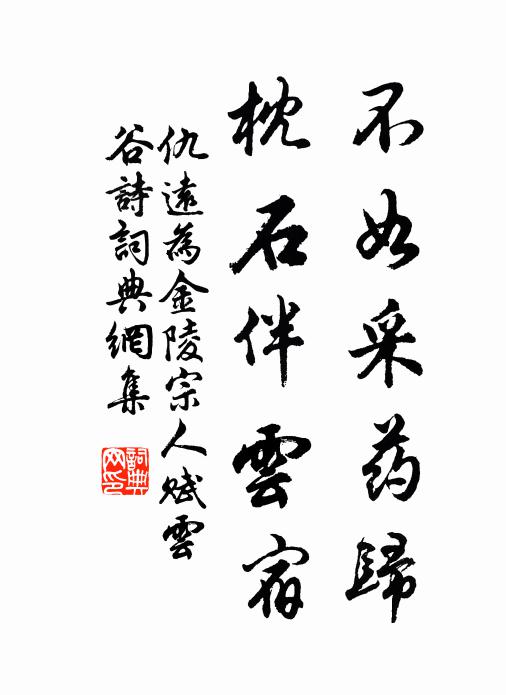 不如采药歸
枕石伴雲宿
仇遠為金陵宗人賦雲
谷詩詞典網集
詞典网印